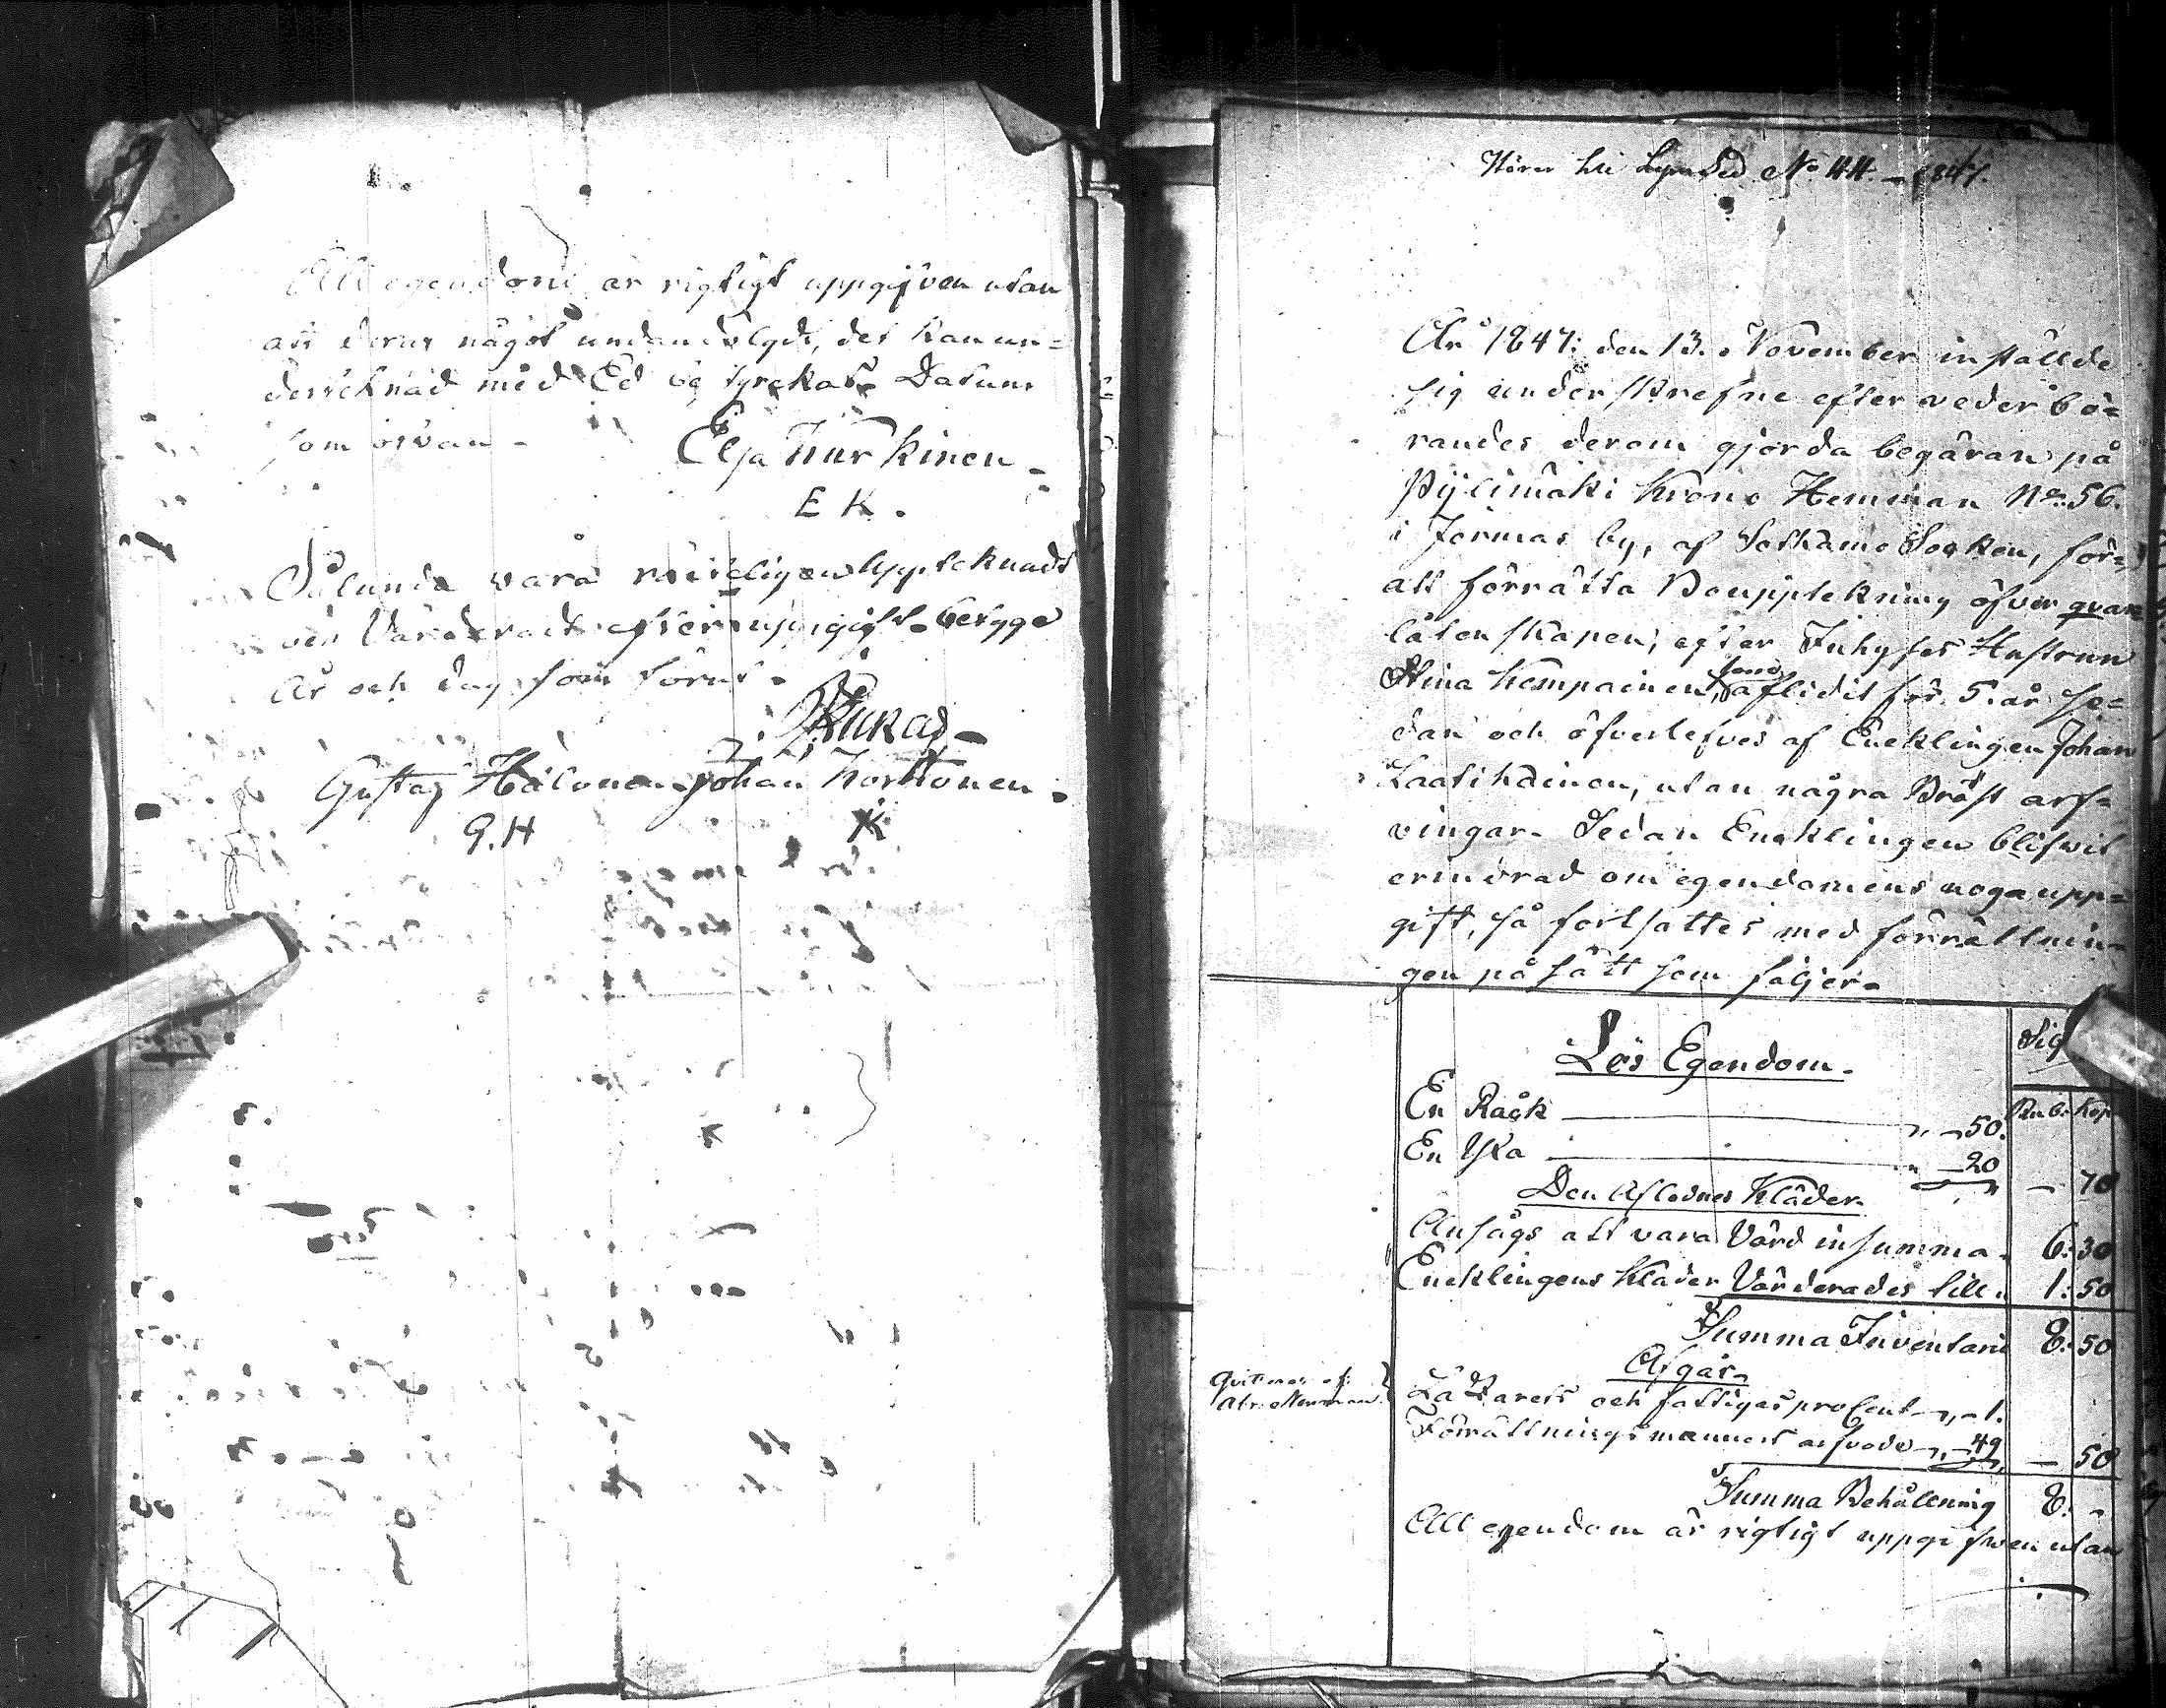 All egendom är rigtigt uppgifven utan
att deraf något undandölgdt, det kan un=
dertecknad med Ed be tyrckas Datum
som ofvan -
Elsa Turkinen -
E K.
Sålunda vara uppteknadt
och Värderadt efter uppgift betyge
År och dag som förut.
Gustaf Halonen Johan Korhonen.
G.H K
Hörer till Lyma Ed No 44. - 1847.
År 1847: den 13. November inställde
sig underskrefne efter vederbö=
randes derom gjorda begäran på
Pylimäki Krono Hemman No: 56.
i Jormas by, af Sotkamo Socken, för=
att förrätta Bouppteckning öfver qvar=
låtenskapen, efter Inhyses Hustrun
Stina Kempainen, som aflidit för 5. år se=
dan och öfverlefves af Encklingen Johan
Laatikainen, utan några Bröst arf=
vingar. Sedan Encklingen blifvit
erindrad om egendomens noga upp=
gift, så fortsattes med förrättnin=
gen på sätt som följer.
Lös Egendom. Sil
Rub. Kop
En Råck " - 50.
En Yxa " - 20 - 70
Den Aflednes Kläder
Ansågs att vara Värd in summa. 6: 30
Encklingens Kläder Värderades till. 1: 50
Summa Inventarii 8: 50
Afgår.
Qvitteras af:
Abr. Newman.
Lazarets och fattigas procent " - 1.
Förrättningsmannens arfvode " - 49 - 50
Summa Behållning 8: -
All egendom är rigtigt uppgifven utan